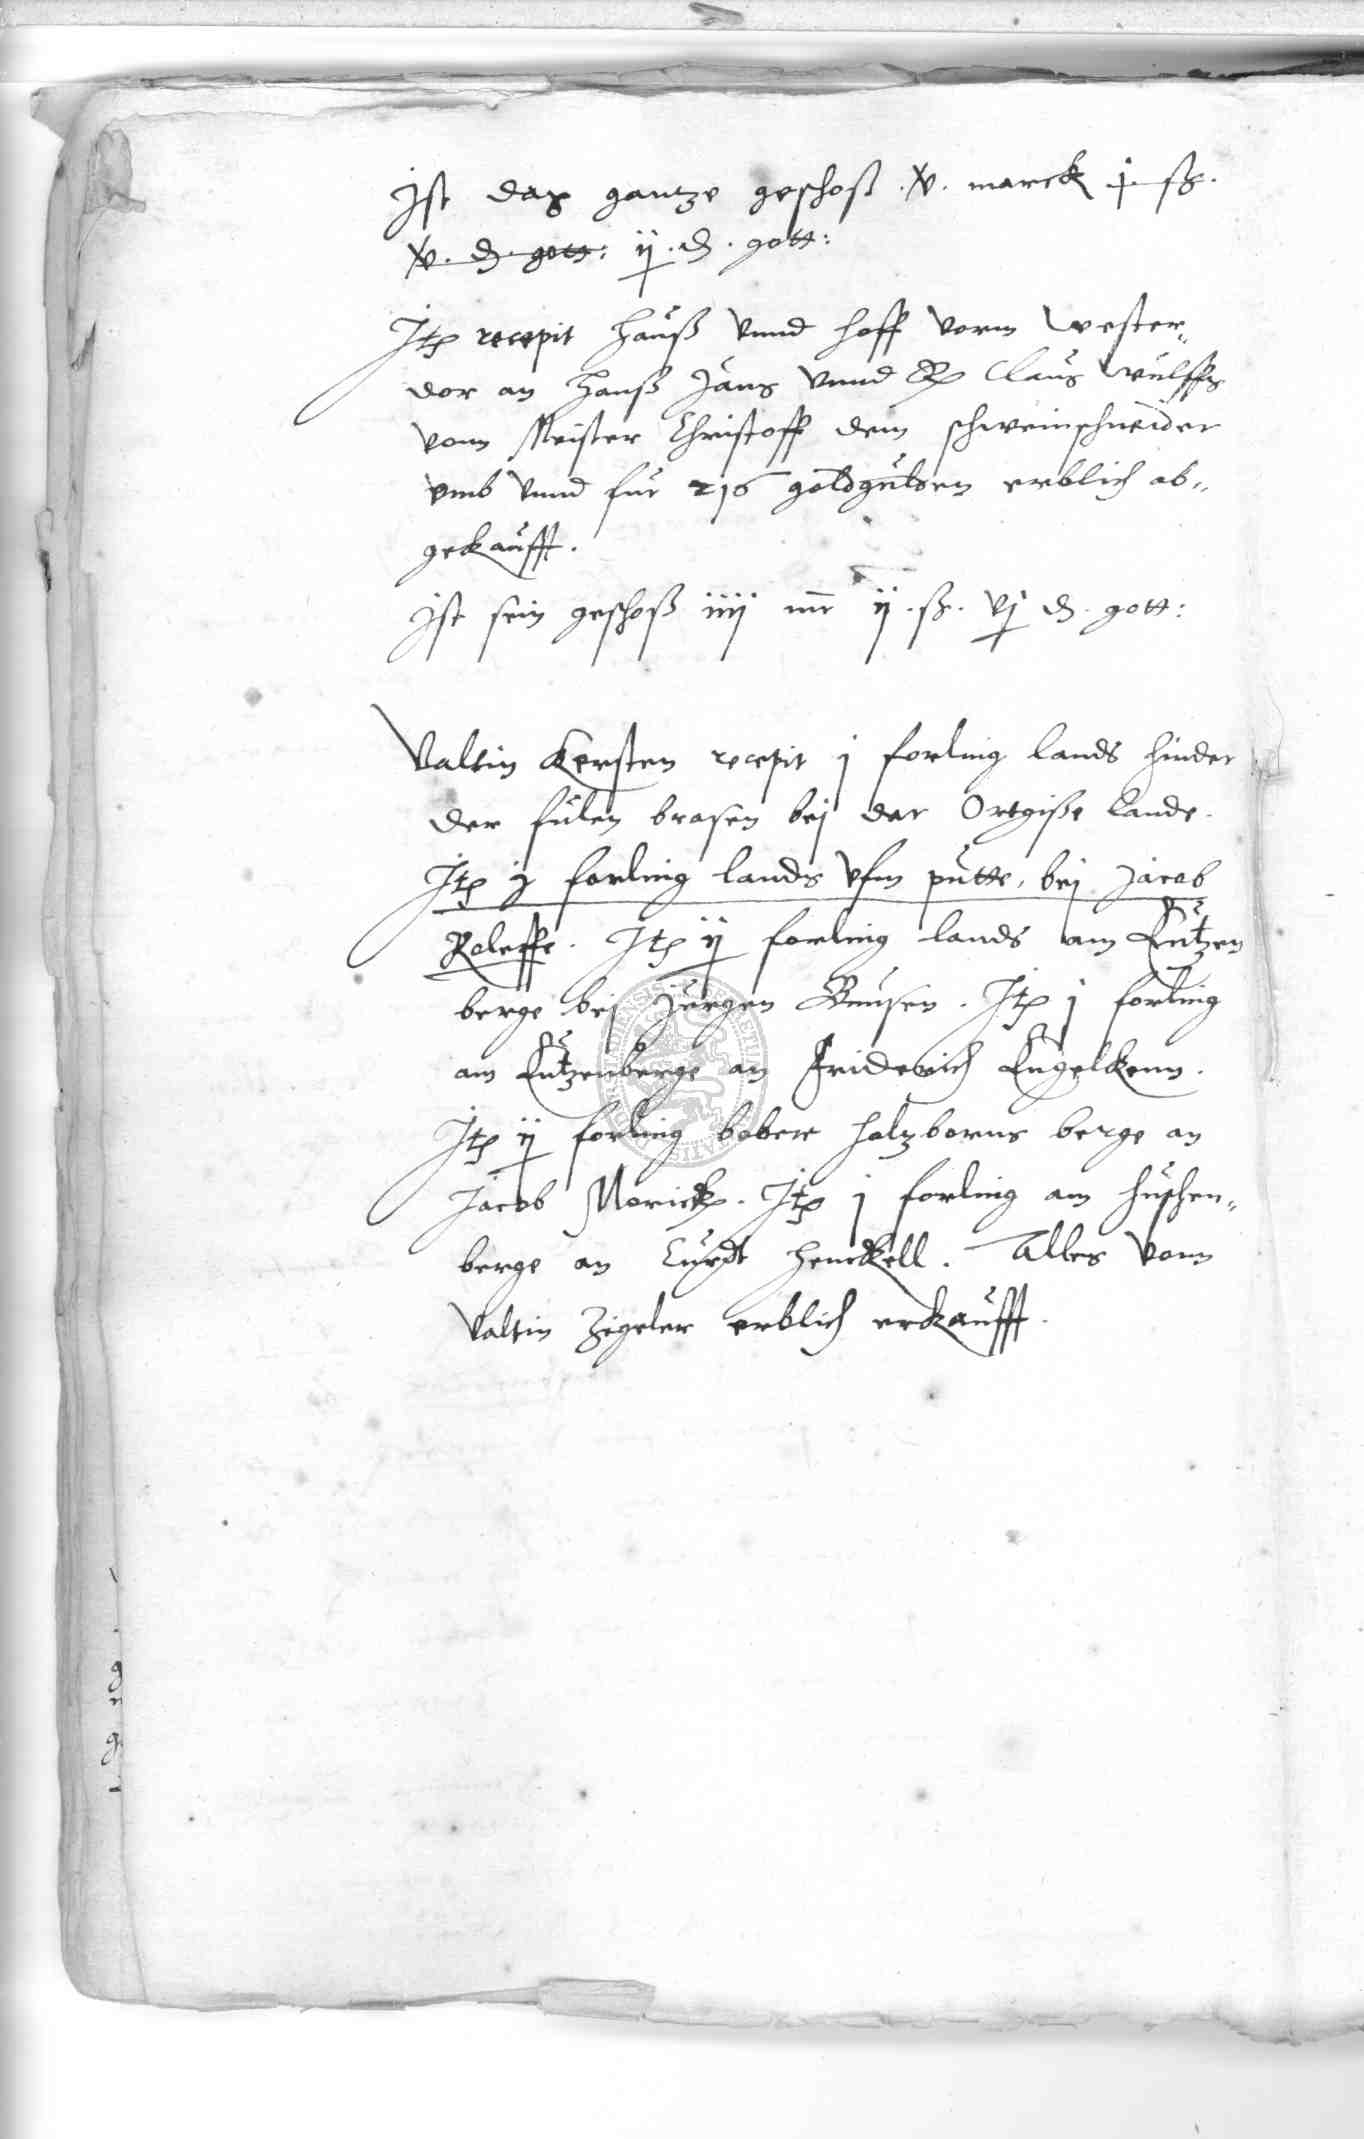 Ist das gantze geschoß .v. marck j. ß.
v. ₰. gott: ij. ₰. gott:
Itẽ recepit Hauß vnnd hoff vorm Wester„
dor an Hanß Jans vnnd Claus Wulffs
vom Meister Christoff dem schweinschneider
vmb vnnd fur 216 goldgulden erblich ab„
gekaufft.
Ist sein geschoß iiij mr ij. ß. vj ₰. gott:
Valtin Kersten recepit j forling lands hinder
der fulen brasen bej der Ortgiße lande.
Itẽ j forling lands vfm putte, bej Jacob
Roleffe. Itẽ ij forling lands am Lutzen
berge bej Jurgen. Itẽ j forling
am Lutzenberge an Friderich Engelkenn.
Itẽ ij forling bober holzborns berge an
Jacob Morick. Itẽ j forling am huschen„
berge an Curdt Henckell. Alles vom
Valtin Zigeler erblich erkaufft.